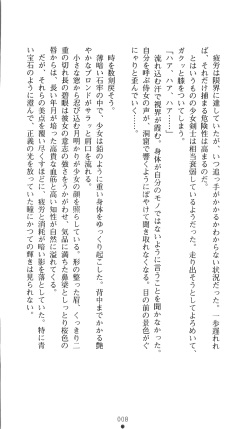 疲労は限界に達していたが、いつ追っ手がかかるかわからない状況だった。一歩遅れれ
ば、それだけ捕まる危険性は高まるのだ。
とはいうものの少女剣士は相当衰弱しているようだった。走り出そうとしてよろめき、
ガクンと膝をついてしまう。
「ハァ、ハァ……」
流れ込む汗で視界が霞む。身体が自分のモノではないように言うことを聞かなかった。
自分を呼ぶ侍女の声が、洞窟で響くようにぼやけて聞き取れなくなる。目の前の景色がぐ
にゃりと歪んでいく……。
時を数刻戻そう。
薄暗い石牢の中で、少女は鉛のように重い身体をゆっくり起こした。背中までかかる艶
やかなブロンドがサラと肩口を流れる。
小さな窓から忍び込む月明かりが少女の顔を照らしている。形の整った眉、くっきり二
重の切れ長の碧眼は彼女の意志の強さをうかがわせ、気品に満ちた鼻梁としっとり桜色の
唇からは、長い年月が培った高貴な血筋と高い知性が自然に溢れてくる。
だが、それらの美点を覆いつくすほどに、疲労と消耗が暗い影を落としていた。特に青
い宝石のように澄んで、正義の光を放っていた瞳にかつての輝きは見られない。
008